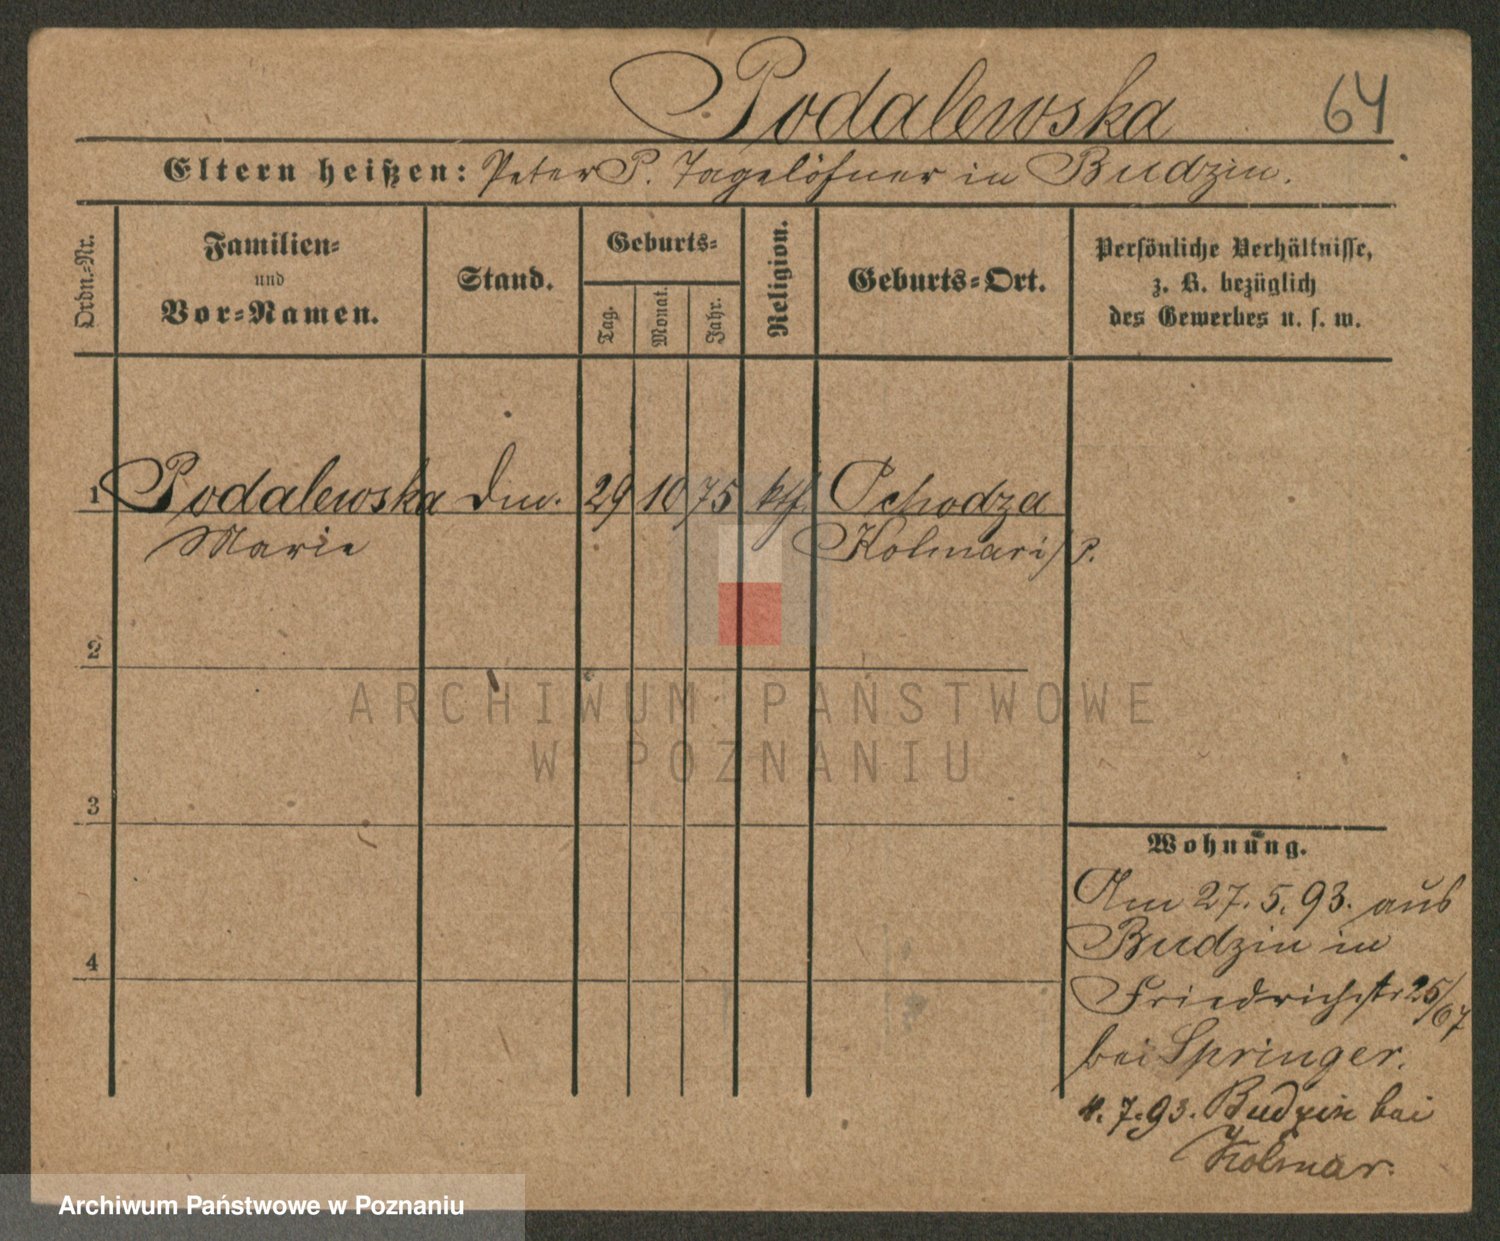 Podalewska
64
Eltern heißen: Peter P. Tagelöhner in Budzin.
Ordn.-Nr.
Familien-
und
Vor-Namen.
Stand.
Geburts-
Tag.
Monat.
Jahr.
Religion.
Geburts-Ort.
Persönliche Verhältnisse,
z. B. bezüglich
des Gewerbes u. s. w.
1 Podalewska Dm. 29 10 75 kth Pchodza
Marie Kolmar i/P.
2
3
4
Wohnung.
Am 27. 5. 93. aus
Budzin in
Friedrichstr 25/67
bei Springer.
7. 93. Budzin bei
Kolmar.
ARCHIWUM PAŃSTWOWE
W POZNANIU
Archiwum Państwowe w Poznaniu